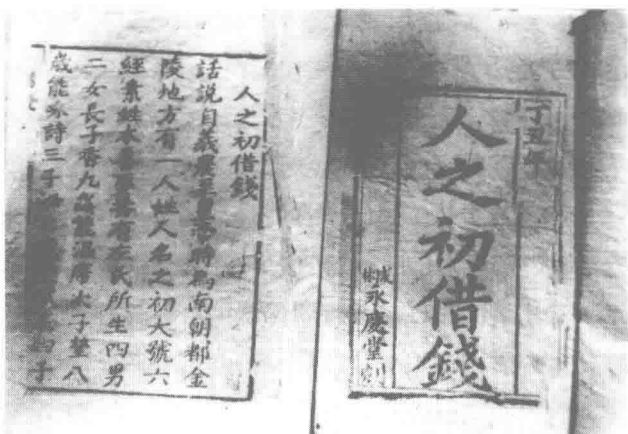 丁丑年
人之初借錢
城永慶堂刻
人之初借錢
話說自羲農至黃帝時為南朝都金
陵地方有一人姓人名之初大號六
經素姓本善有左氏所生四男
二女長子香九歲能溫席次子瑩八
歲能咏詩三子